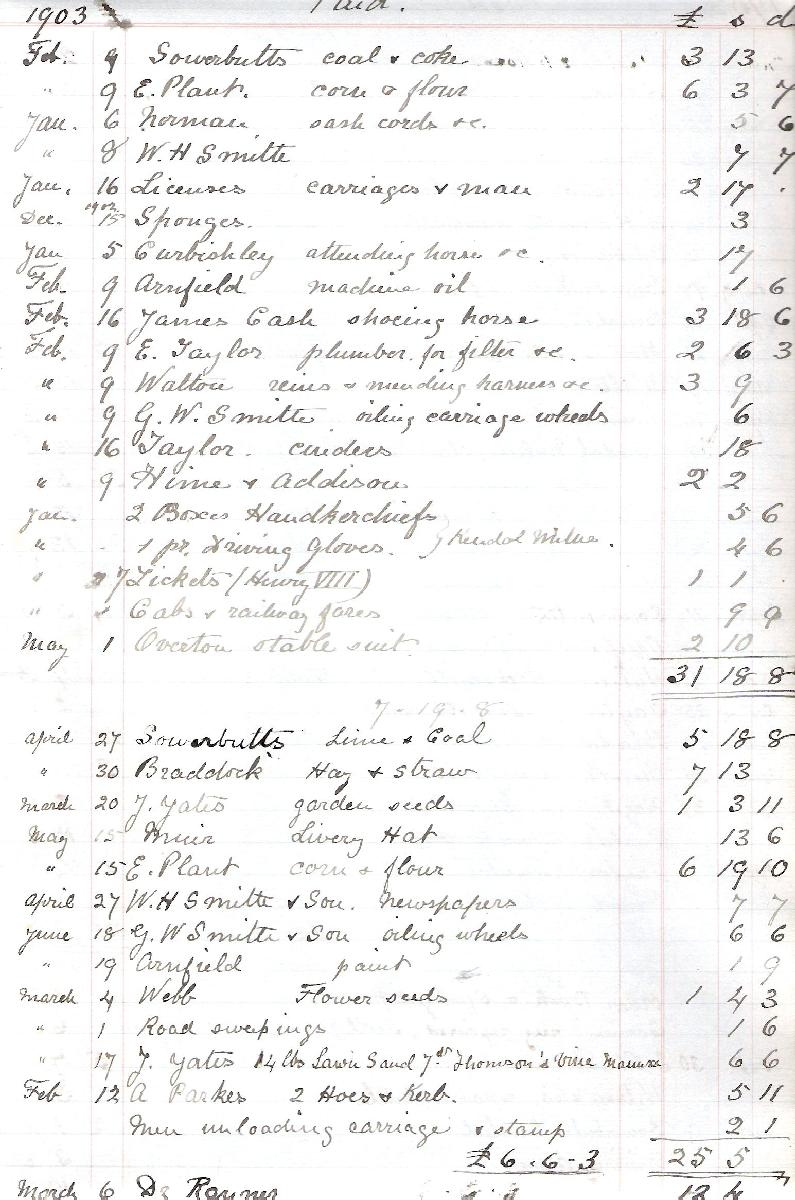 1903 Paid. £ s d
Feb. 9 Sowerbutts coal & coke 3 13
" 9 E. Plant. corn & flour 6 3 7
Jan. 6 Norman sash cords &c. 5 6
" 8 W. H Smith 7 7
Jan. 16 Licenses carriages & man 2 17 .
Dec. 1902 15 Sponges. 3
Jan 5 Curbishley attending horse &c. 17
Feb. 9 Arnfield machine oil 1 6
Feb. 16 James Cash shoeing horse 3 18 6
Feb. 9 E. Taylor plumber. for filter &c. 2 6 3
" 9 Walton reins & mending harness &c. 3 9
" 9 G. W. Smith oiling carriage wheels 6
" 16 Taylor. cinders 18
" 9 Hime & Addison 2 2
Jan. 2 Boxes Handkerchiefs 5 6
" 1 pr. Driving Gloves. } Kendal Milne. 4 6
" 7 Tickets (Henry VIII) 1 1
" " Cabs & railway fares 9 9
May 1 Overton stable suit. 2 10
31 18 8
7 - 19 - 8
April 27 Sowerbutts Lime & Coal 5 18 8
" 30 Braddock Hay & straw 7 13
March 20 J. Yates garden seeds 1 3 11
May 15 Muir Livery Hat 13 6
" 15 E. Plant corn & flour 6 19 10
April 27 W. H Smith & Son. Newspapers 7 7
June 18 G. W Smith & Son oiling wheels 6 6
" 19 Arnfield paint 1 9
March 4 Webb Flower seeds 1 4 3
" 1 Road sweepings 1 6
" 17 J. Yates 14 lbs Lawn Sand 7 do Thomson's Vine Manure 6 6
Feb 12 A Parkes 2 Hoes & Kerb. 5 11
Men unloading carriage & stamp 2 1
£6 - 6 - 3 25 5
March 6 Dr Rayner 12 4